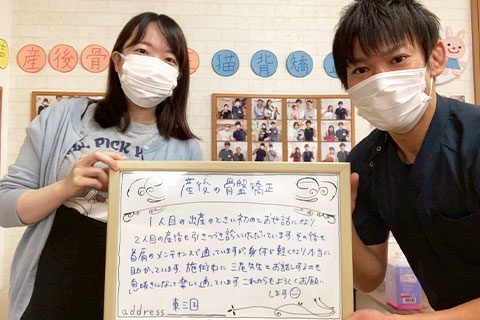 産後骨
猫背矯
PICK
産後の骨盤矯正
1人目の出産のときに初めてお世話になり
2人目の産後も引きつづき診ていただいています。その後も
首肩のメンテナンスで通っていますが、身体が軽くなり本当に
助かっています。施術中に三尾先生とお話しするのも
息抜きになって楽しく通っています。これからもよろしくお願い
します☺
address 東三国